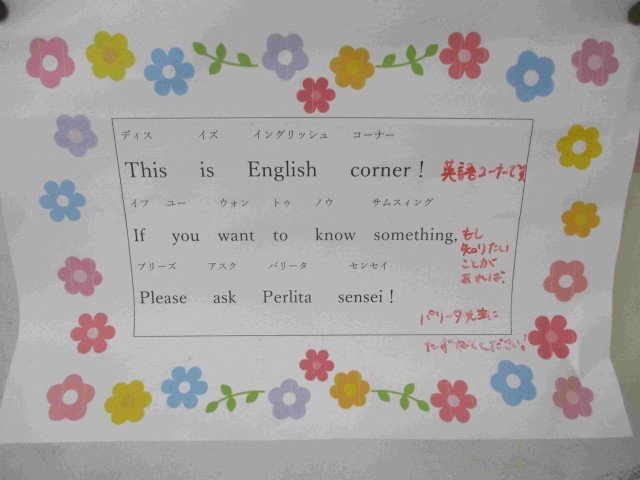 ディス イズ イングリッシュ コーナー
This is English corner! 英語コーナーです
イフ ユー ウォン トゥ ノウ サムスィング
If you want to know something, もし
知りたい
ことが
あれば、
プリーズ アスク パリータ センセイ
Please ask Perlita sensei!
パリータ先生に
たずねてください!